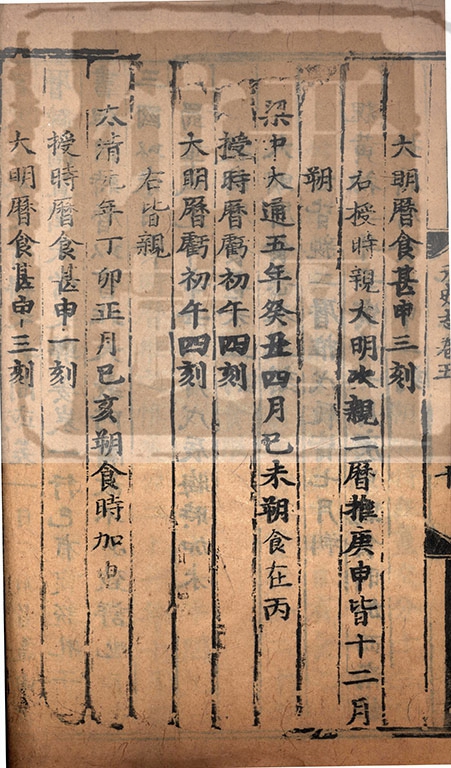 大明曆食甚申三刻
右授時親大明次親二曆推庚申皆十二月
朔
梁中大通五年癸丑四月己未朔食在丙
授時曆虧初午四刻
大明曆虧初午四刻
右皆親
太清元年丁卯正月己亥朔食時加申
授時曆食甚申一刻
大明曆食甚申三刻